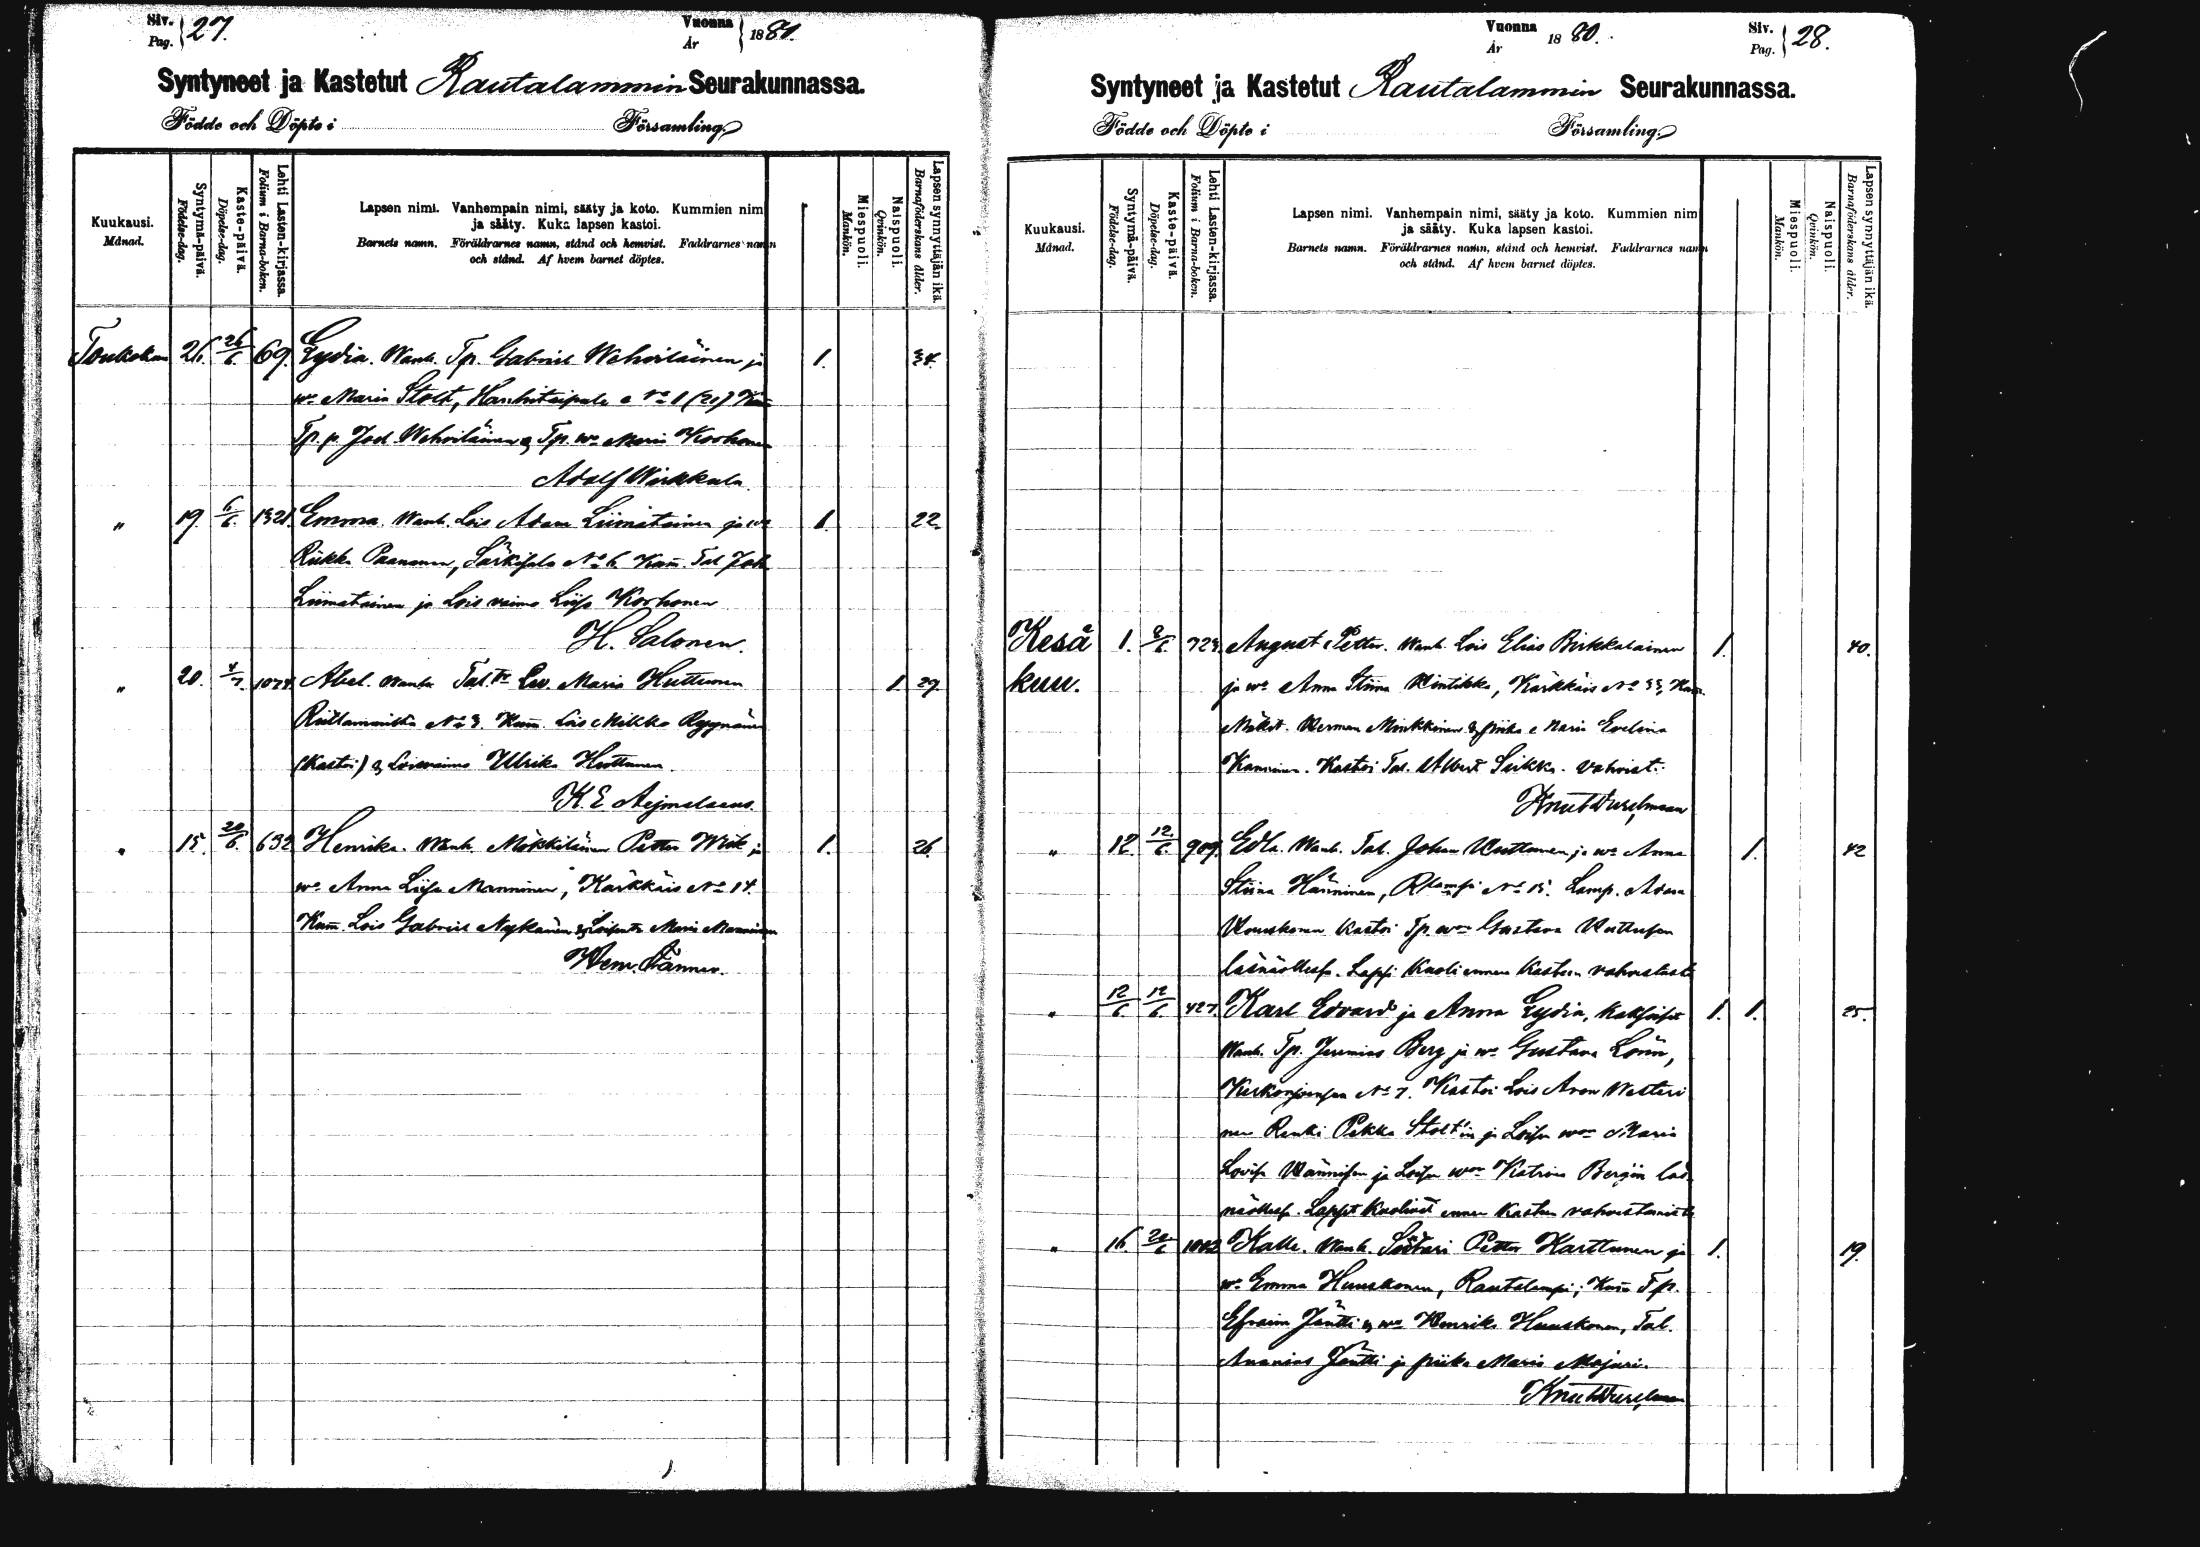 Siv. Pag. 27. Vuonna År 1880.
Syntyneet ja Kastetut Rautalammin Seurakunnassa.
Födde och Döpte i Församling
Kuukausi. Månad.
Syntymä-päivä. Födelse-dag.
Kaste-päivä. Döpelse-dag.
Lehti Lasten-kirjassa. Folium i Barna-boken.
Lapsen nimi. Vanhempain nimi, sääty ja koto. Kummien nim
ja sääty. Kuka lapsen kastoi.
Barnets namn. Föräldrarnes namn, stånd och hemvist. Faddrarnes namn
och stånd. Af hvem barnet döptes.
Miespuoli. Mankön.
Naispuoli. Qvinkön.
Lapsen synnyttäjän ikä. Barnaföderskans ålder.
Toukokuu 26. 26/6. 69. Lydia. Wanh. Tp. Gabriel Wehviläinen ja 1. 34.
wo Maria Stolt, Hanhitaipale No 1 (21) Kum
Tp. p. Joel Wehviläinen & Tp. wo Maria Korhonen
Adolf Wirkkula
" 19. 6/6. 1321. Emma. Wanh. Lois Adam Liimatainen ja wo 1. 22.
Riikka Paananen, Särkisalo No 6. Kum. Tal. Joh.
Liimatainen ja Lois vaimo Liisa Korhonen
H. Salonen.
" 20. 4/7. 1074. Abel. Wanha Tal. Maria Huttunen 1. 29.
No 3. Kum. Lois Mikko Ryynänen
(Kastoi) & Loisvaimo Ulrika Huttunen.
K. E. Aejmelaeus.
" 15. 20/6. 632 Henrika. Wanh. Mökkiläinen Petter Wik ja 1. 26.
wo Anna Liisa Manninen, Kärkkäis No 14.
Kum. Lois Gabriel Nykänen & Maria Manninen
Wänner.
Vuonna År 1880. Siv. Pag. 28.
Syntyneet ja Kastetut Rautalammin Seurakunnassa.
Födde och Döpte i Församling
Kuukausi. Månad.
Syntymä-päivä. Födelse-dag.
Kaste-päivä. Döpelse-dag.
Lehti Lasten-kirjassa. Folium i Barna-boken.
Lapsen nimi. Vanhempain nimi, sääty ja koto. Kummien nim
ja sääty. Kuka lapsen kastoi.
Barnets namn. Föräldrarnes namn, stånd och hemvist. Faddrarnes namn
och stånd. Af hvem barnet döptes.
Miespuoli. Mankön.
Naispuoli. Qvinkön.
Lapsen synnyttäjän ikä. Barnaföderskans ålder.
Kesä 1. 723. August Petter. Wanh. Lois Elias Pirkkalainen 1. 40.
kuu. ja wo Anna Stiina Hintikka, Kärkkäis No 33, Kum.
Mäkit. Herman Minkkinen & piika Maria Evelina
Kastoi Tal. Albert Seikka. vahvist.
" 12. 12/6. 909. Edla. Wanh. Tal. Johan Huttunen ja wo Anna 1. 42
Stiina Hänninen, Rlampi No 15. Lamp. Adam
Huuskonen kastoi Tp. won Gustava Huttusen
läsnäollessa. Lapsi kuoli ennen kasteen vahvistusta
" 12/6. 12/6. 427. Karl Edvard ja Anna Lydia, kaksoiset 1. 1. 25.
Wanh. Tp. Jeremias Berg ja wo Gustava Lorin,
No 7. Kastoi Lois Aron Westeri
nen Renki Pekka Stolt'in ja Loisen won Maria
Lovisa Hännisen ja Loisen won Katrina Bergin läs
näollessa. Lapset kuolivat ennen kasteen vahvistamista
" 16. 20/6 1002 Kalle. Wanh. Suutari Petter Karttunen ja 1. 19.
wo Emma Huuskonen, Rautalampi; Kum. Tp.
Efraim Jäntti & wo Henrika Huuskonen, Tal.
Ananias Jäntti ja piika Maria Majuri.